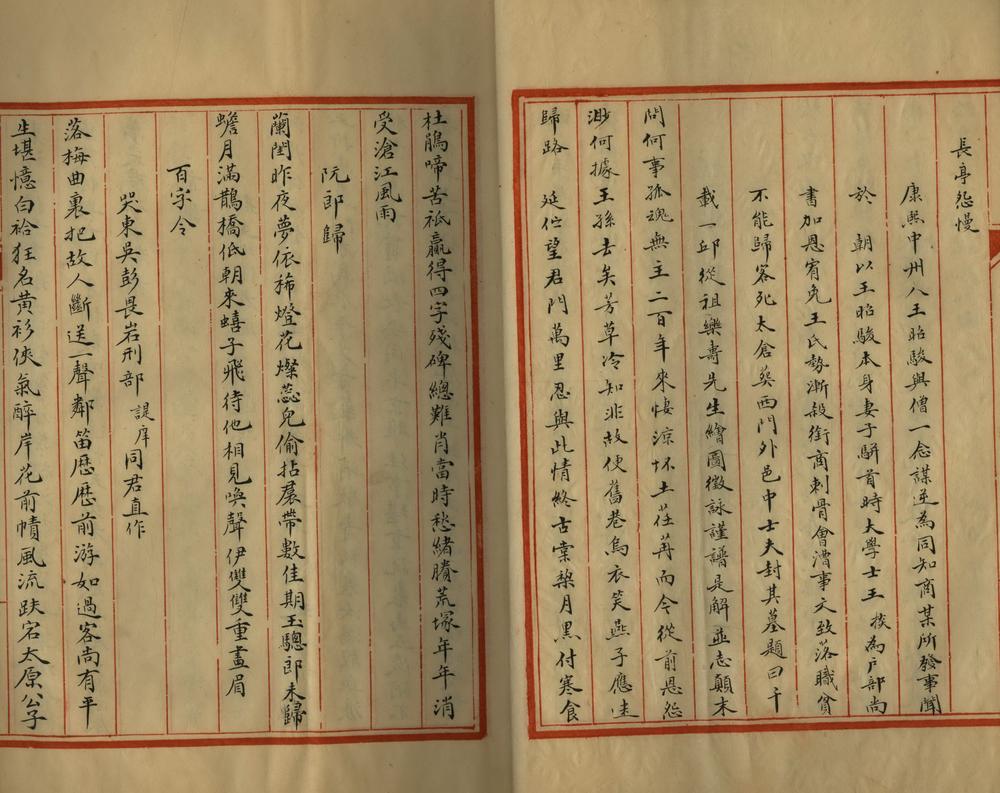 長亭怨慢
康熙中州八王昭駿與僧一念謀逆為同知商某所發事聞
於　朝以王昭駿本身妻子駢首時大學士王　掞為戶部尚
書加恩宥免王氏勢漸殺銜商刺骨會漕事文致落職貧
不能歸客死太倉葬西門外邑中士夫封其墓題曰千
載一邱從祖樂壽先生繪圖徵詠謹譜是解並志顛末
問何事孤魂無主二百年來悽涼抔土荏苒而今從前恩怨
渺何據王孫去矣芳草冷知非故便舊巷烏衣笑燕子應迷
歸路　延佇望君門萬里忍與此情終古棠棃月黑付寒食
杜鵑啼苦祇贏得四字殘碑總難肖當時愁緒賸荒塚年年消
受滄江風雨
阮郎歸
蘭閨昨夜夢依稀燈花燦蕊兒偷拈裠帶數佳期玉驄郎未歸
蟾月滿鵲橋低朝來蟢子飛待他相見喚聲伊雙雙重畫眉
百字令
哭東吳彭畏岩刑部諟庠同君直作
落梅曲裏把故人斷送一聲鄰笛歷歷前游如過客尚有平
生堪憶白袷狂名黄衫俠氣醉岸花前幘風流跌宕太原公子